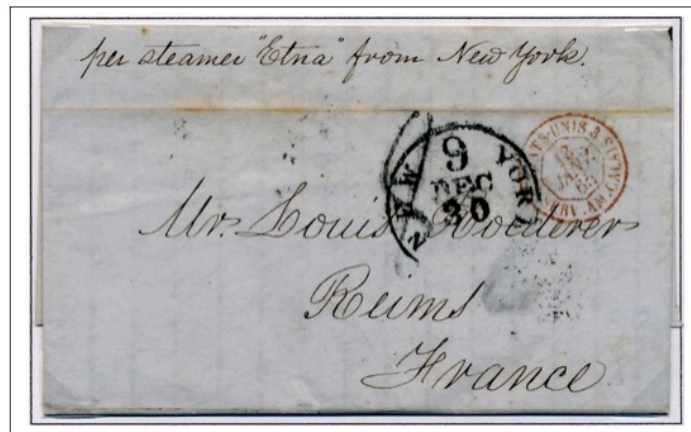 per steamer "Etna" from New York.
NEW YORK
9
DEC
30
ETATS-UNIS 3
JANV.
SERV. AM. CALAIS
Mr. Louis Roederer
Reims
France